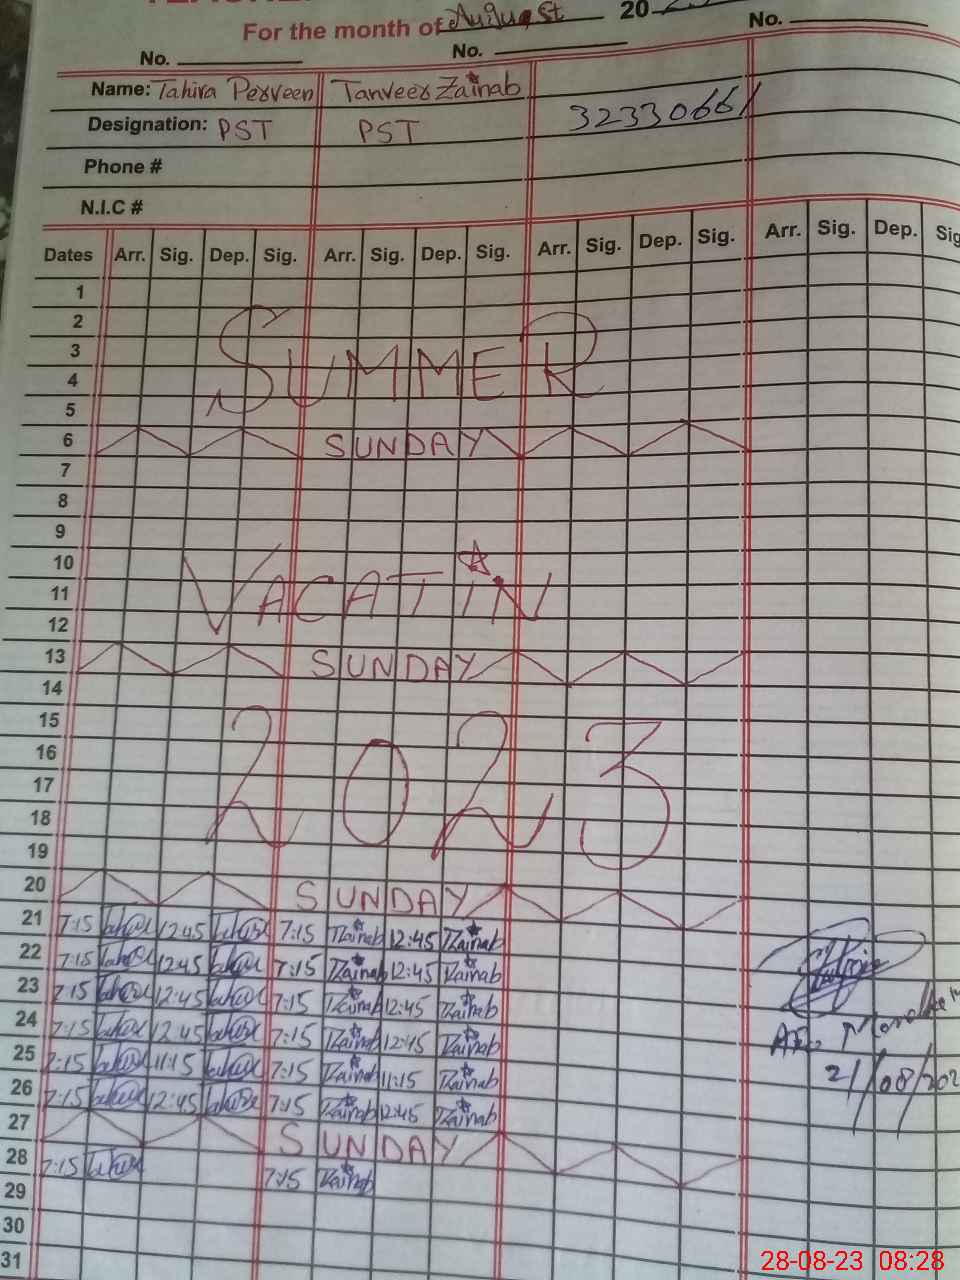 For the month of August 20
No. No. No.
Name: Tahira Perveen Tanveer Zainab
Designation: PST PST 32330661
Phone #
N.I.C #
Dates Arr. Sig. Dep. Sig. Arr. Sig. Dep. Sig. Arr. Sig. Dep. Sig. Arr. Sig. Dep. Sig
1
2
3
SUMMER
4
5
6 SUNDAY
7
8
9
10
11 VACATIN
12
13 SUNDAY
14
15
16
17 2023
18
19
20 SUNDAY
21 7:15 12:45 7:15 TZainab 12:45 TZainab
22 7:15 12:45 7:15 TZainab 12:45 TZainab
23 7:15 12:45 7:15 TZainab 12:45 TZainab
24 7:15 12:45 7:15 TZainab 12:45 TZainab
25 7:15 11:15 7:15 TZainab 11:15 TZainab
26 7:15 12:45 7:15 TZainab 12:45 TZainab
21/08/202
27 SUNDAY
28 7:15 7:15 TZainab
29
30
31
28-08-23 08:28